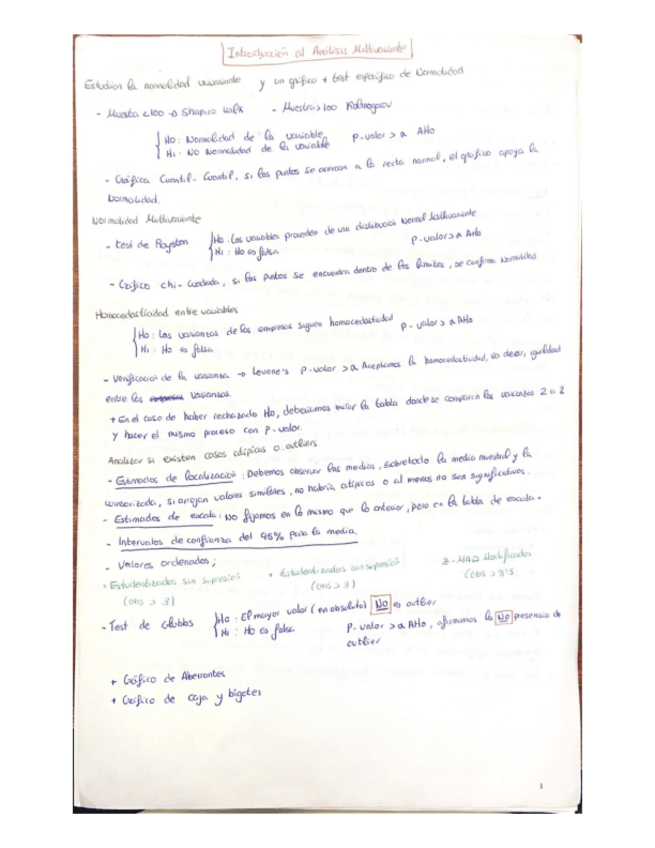 Introducción al Análisis Multivariante
Estudiar la normalidad univariante y un gráfico + test específico de Normalidad
- Muestra <100 → Shapiro Wilk - Muestras >100 Kolmogorov
H0: Normalidad de la variable p-valor > α AH0
H1: No Normalidad de la variable
- Gráfica Cuantil-Cuantil, si los puntos se acercan a la recta normal, el gráfico apoya la
Normalidad.
Normalidad Multivariante
- test de Royston H0: Las variables proceden de una distribución Normal Multivariante
H1: H0 es falsa p-valor > α AH0
- Gráfico chi-cuadrado, si los puntos se encuentra dentro de los límites, se confirma Normalidad
Homocedasticidad entre variables
H0: Las varianzas de las empresas siguen homocedasticidad p-valor > α AH0
H1: H0 es falsa
- Verificación de la varianza → Levene's p-valor > α Aceptamos la homocedasticidad, es decir, igualdad
entre las varianzas.
+ En el caso de haber rechazado H0, deberíamos mirar la tabla donde se comparan las varianzas 2 a 2
y hacer el mismo proceso con p-valor.
Analizar si existen casos atípicos o outliers
- Estimados de localización: Debemos observar las medias, sobretodo la media muestral y la
winsorizada, si arrojan valores similares, no habría atípicos o al menos no son significativos.
- Estimados de escala: No fijamos en lo mismo que lo anterior, pero en la tabla de escala.
- Intervalos de confianza del 95% para la media.
- Valores ordenados;
+ Estudentizados sin supresión + Estudentizados con supresión Z-MAD Modificados
(obs > 3) (obs > 3) (obs > 3'5
- Test de Grubbs H0: El mayor valor (en absoluto) No es outlier
H1: H0 es falsa p-valor > α AH0, afirmamos la No presencia de
outlier
+ Gráfico de Aberrantes
+ Gráfico de caja y bigotes
1